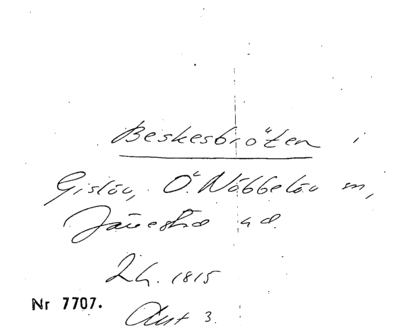 Beskesbröten i
Gislöv, Ö. Nöbbelöv m,
Järrestad h d.
Lh. 1815
Nr 7707.
Aut 3.